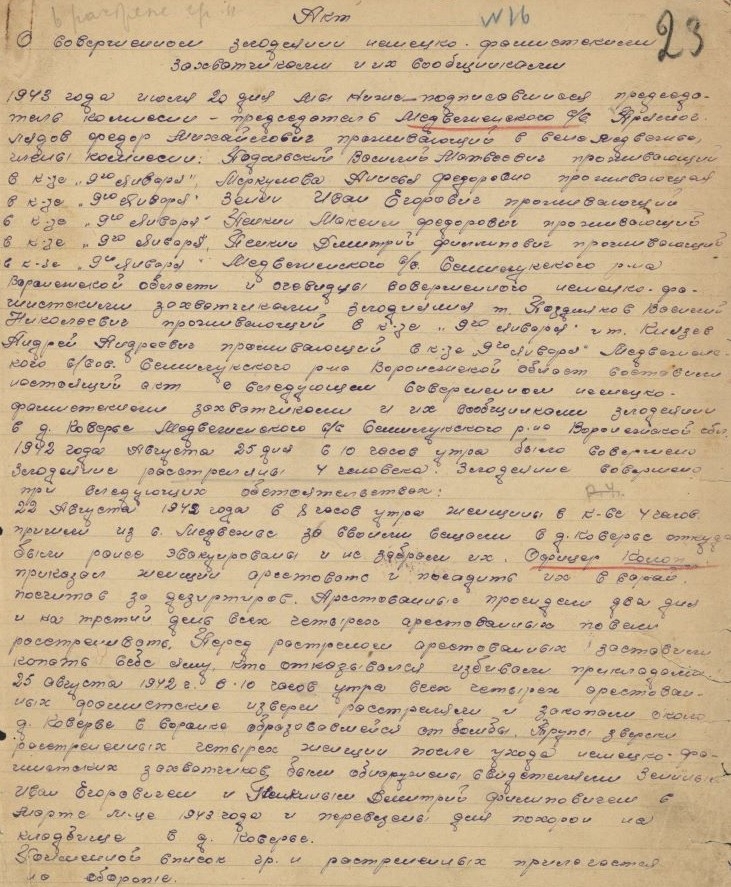 Акт №16 23
О совершенном злодеянии немецко-фашистскими
захватчиками и их сообщниками
1943 года июля 20 дня мы ниже-подписавшиеся председа-
тель комиссии - председатель Медвеженского с/с
Федор Михайлович проживающий в селе Медвежье,
члены комиссии: Василий Матвеевич проживающий
в к-зе „9го Января", Меркулова Анисья Федоровна проживающая
в к-зе „9го Января" Зенин Иван Егорович проживающий
в к-зе „9го Января" Пенкин Максим Федорович проживающий
в к-зе „9го Января", Пенкин Дмитрий Филиппович проживающий
в к-зе „9го Января" Медвеженского с/с. Семилукского р-на
Воронежской области и очевидцы совершенного немецко-фа-
шистскими захватчиками злодеяния т. Поздняков Василий
Николаевич проживающий в к-зе „9го Января" и т. Князев
Андрей Андреевич проживающий в к-зе „9го Января" Медвежен-
кого с/сов. Семилукского р-на Воронежской област составили
настоящий акт о следующем совершенном немецко-
фашистскими захватчиками и их сообщниками злодеянии
в д. Коверье Медвеженского с/с Семилукского р-на Воронежской обл,
1942 года Августа 25 дня в 10 часов утра было совершено
Злодеяние расстреляны 4 человека. Злодеяние совершено
при следующих обстоятельствах:
22 Августа 1942 года в 8 часов утра женщины в к-ве 4 челов.
пришли из с. Медвежье за своими вещами в д. Коверье откуда
были ранее эвакуированы и не забрали их. Офицер
приказал женщин арестовать и посадить их в сарай,
посчитав за дезиртиров. Арестованные просидели два дня
и на третий день всех четырех арестованных повели
расстреливать. Перед растрелом арестованных заставили
копать себе яму, кто отказывался избивали прикладами.
25 августа 1942 г. в 10 часов утра всех четырех арестован-
ных фашистские изверги расстреляли и закопали около
д. Коверье в воронке образовавшейся от бомбы. Трупы зверски
расстрелянных четырех женщин после ухода немецко-фа-
шистских захватчиков были обнаружены свидетелями Зениным
Иван Егоровичем и Пенкиным Дмитрий Филиповичем в
марте м-це 1943 года и перевезены для похорон на
кладбище в д. Коверье.
Поименной список гр. и растрелянных прилогается
на обороте.